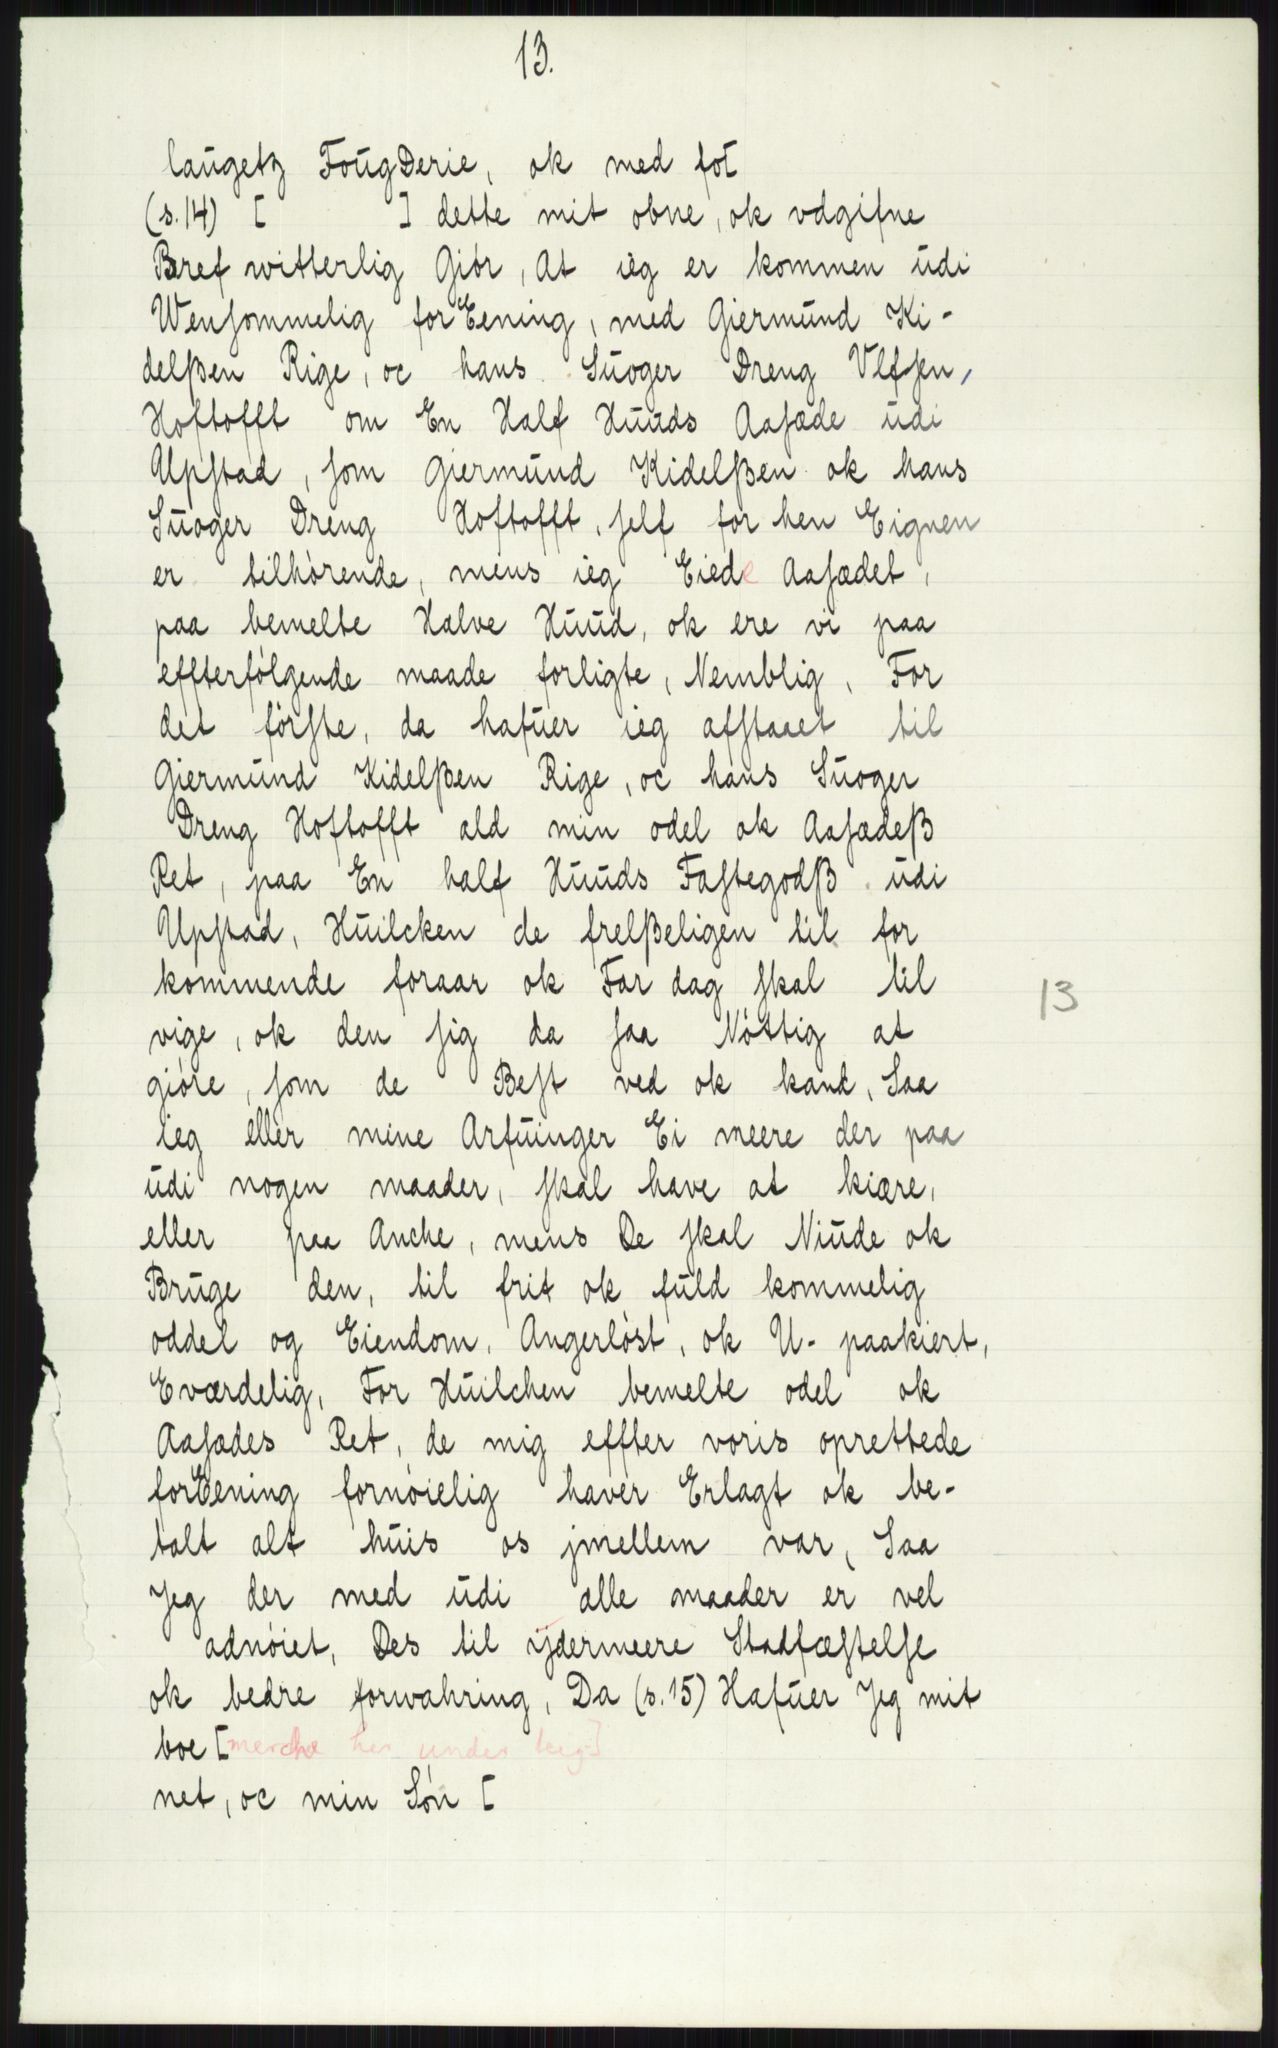 13.
laugetz FougDerie, ok med fo[
(s. 14) [ ] dette mit obne, ok vdgifne
Bref witterlig Giór, At ieg er kommen udi
Wensommelig forEening, med Giermund Ki-
delßen Rige, oc hans Suoger Dreng Vlfsen,
Hoftofft om En Half Huuds Aasæde udi
Upstad, som Giermund Kidelßen ok hans
Suoger Dreng Hoftofft, self for hen Eignen
er tilhórende, mens ieg Eiede Aasædet,
paa bemelte Halve Huud, ok ere vi paa
effterfólgende maade forligte, Nemblig, For
det fórste, da hafuer ieg afstaaet til
Giermund Kidelßen Rige, oc hans Suoger
Dreng Hoftofft ald min odel ok Aasædeß
Ret, paa En half Huuds Fastegodß udi
Upstad, Huilcken de frelßeligen til for
kommende foraar ok Far dag skal til
vige, ok den sig da saa Nóttig at
gióre, som de Best ved ok kand, Saa
ieg eller mine Arfuinger Ei meere der paa
udi nogen maader, skal have at kiære,
eller paa Anche, mens De skal Niude ok
Bruge den, til frit ok fuld kommelig
oddel og Eiendom, Angerlóst, ok U-paakiert,
Eværdelig, For Huilchen bemelte odel ok
Aasædes Ret, de mig effter voris oprettede
forEening fornóielig haver Erlagt ok be-
talt alt huis os jmellem var, Saa
Jeg der med udi alle maader er vel
adnóiet, Des til ijdermeere Stadfæstelse
ok bedre forwahring, Da (s. 15) Hafuer Jeg mit
boe [merche her under teig]
net, oc min Són [
13